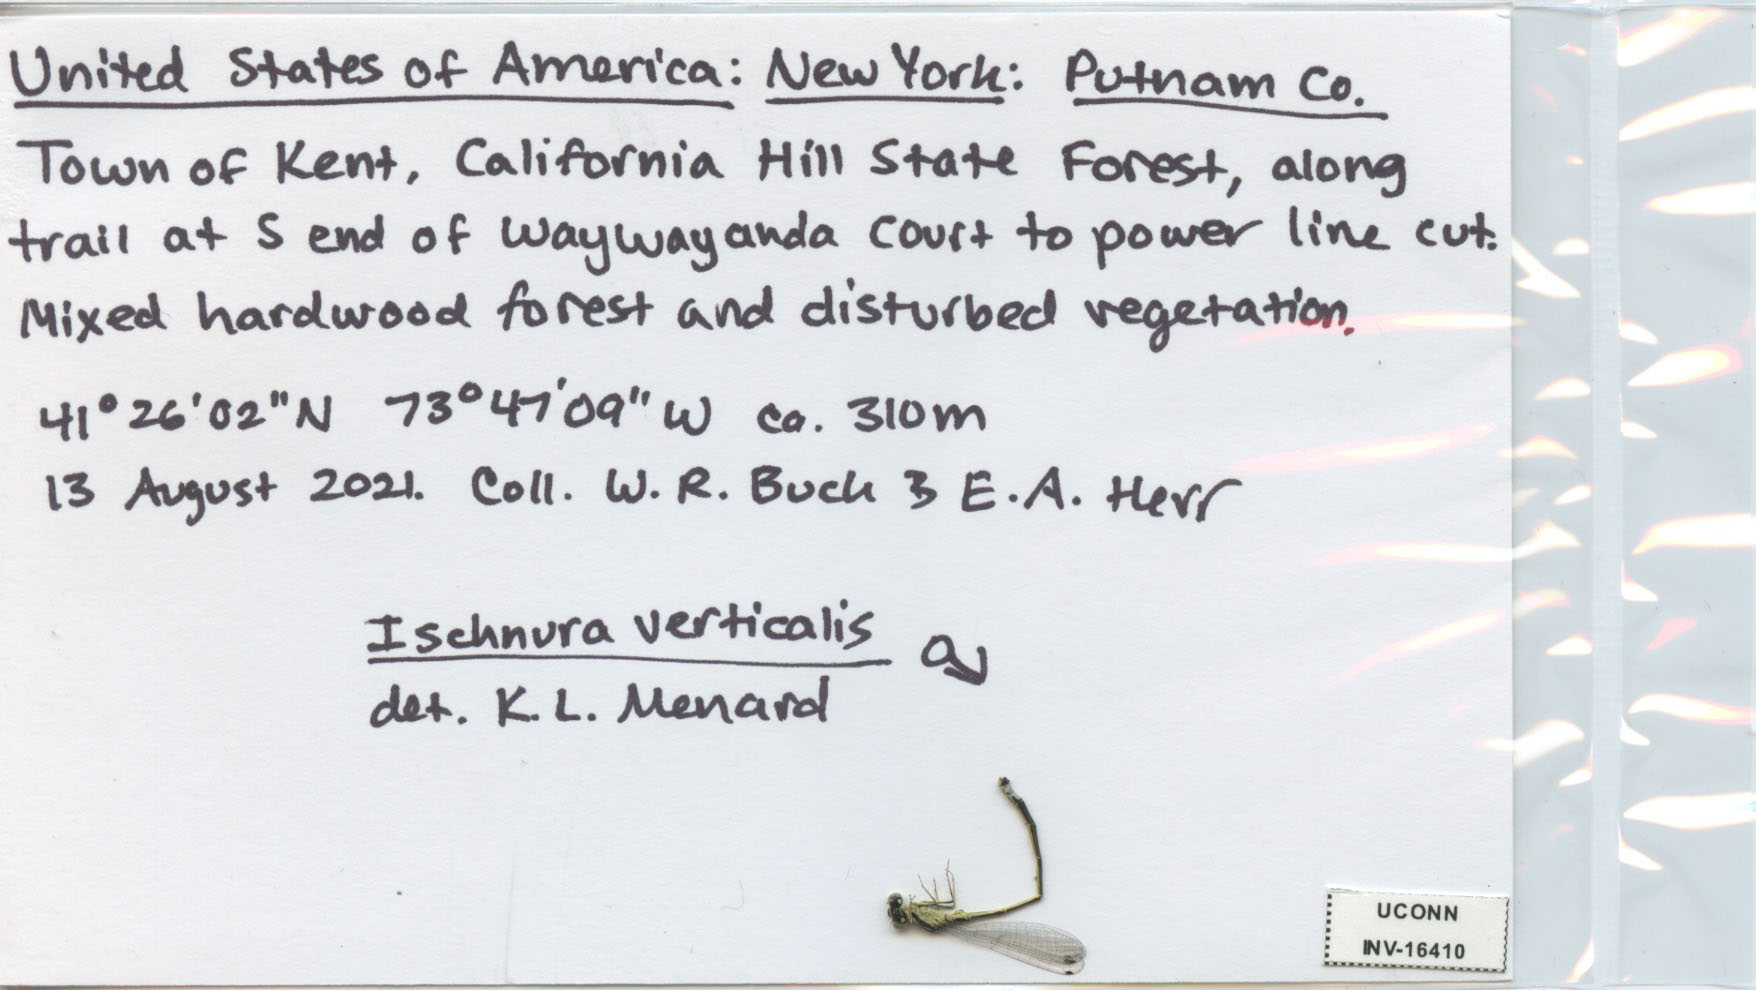 United States of America: New York: Putnam Co.
Town of Kent, California Hill State Forest, along
trail at S end of Waywayanda Court to power line cut.
Mixed hardwood forest and disturbed vegetation.
41°26'02"N 73°47'09"W ca. 310m
13 August 2021. Coll. W. R. Buck & E. A. Herr
Ischnura verticalis ♂
det. K. L. Menard
UCONN
INV-16410